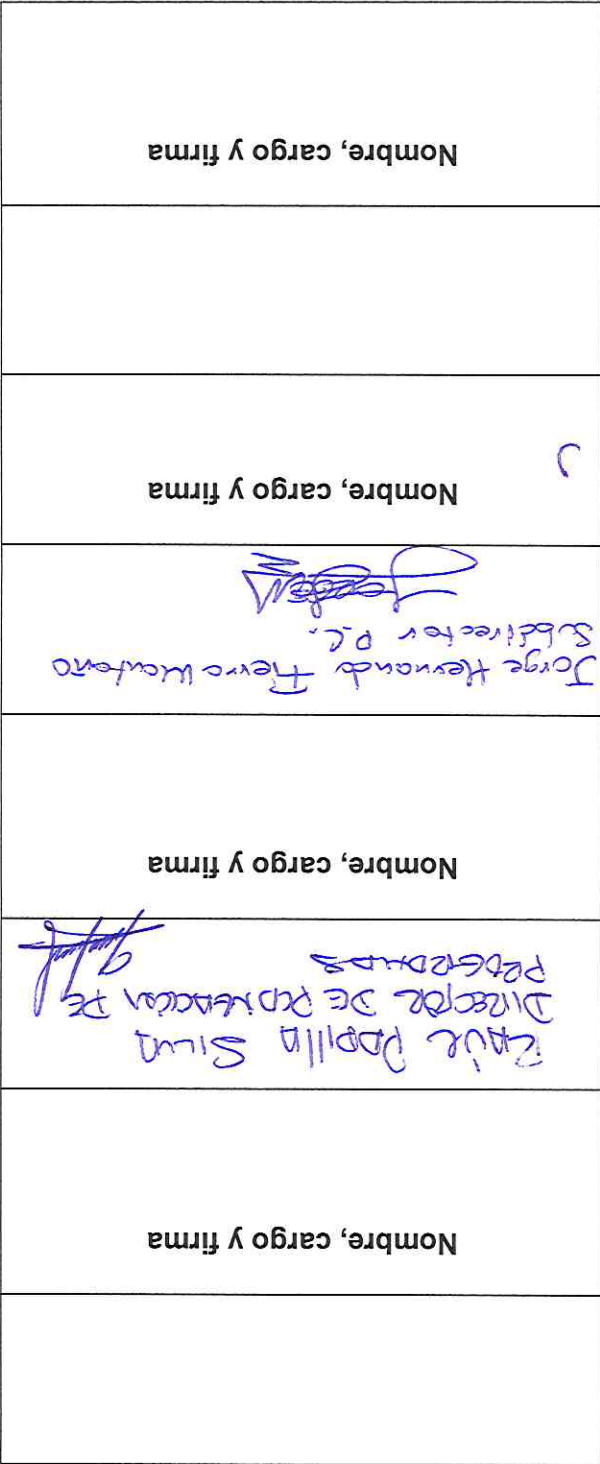 Nombre, cargo y firma
RAÚL PADILLA SILVA
DIRECTOR DE PLANEACION DE
PROGRAMAS
Nombre, cargo y firma
Jorge Hernando Fierro Montaño
Subdirector P.C.
Nombre, cargo y firma
Nombre, cargo y firma